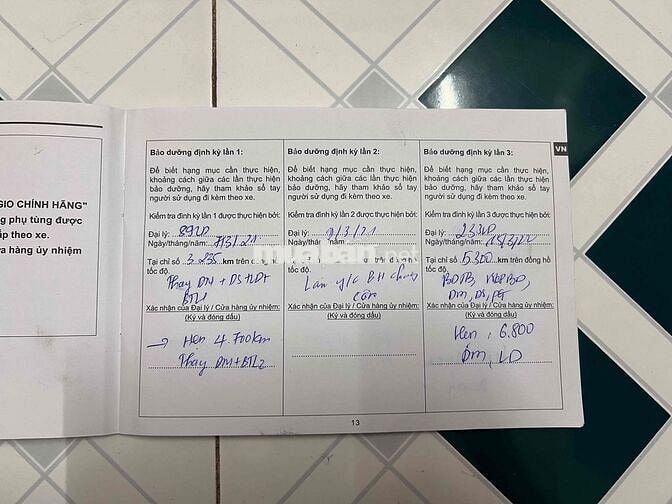 GIO CHÍNH HÃNG"
ng phụ tùng được
ấp theo xe.
ửa hàng ủy nhiệm
Bảo dưỡng định kỳ lần 1:
Để biết hạng mục cần thực hiện,
khoảng cách giữa các lần thực hiện
bảo dưỡng, hãy tham khảo sổ tay
người sử dụng đi kèm theo xe.
Kiểm tra định kỳ lần 1 được thực hiện bởi:
Đại lý: 8920
Ngày/tháng/năm: 7/3/21
Tại chỉ số 3.235 km trên đồng hồ
tốc độ.
Thay DM + DS + LDT
BTL1
Xác nhận của Đại lý / Cửa hàng ủy nhiệm:
(Ký và đóng dấu)
→ Hẹn 4.700km
Thay DM + BTL2
Bảo dưỡng định kỳ lần 2:
Để biết hạng mục cần thực hiện,
khoảng cách giữa các lần thực hiện
bảo dưỡng, hãy tham khảo sổ tay
người sử dụng đi kèm theo xe.
Kiểm tra định kỳ lần 2 được thực hiện bởi:
Đại lý:
Ngày/tháng/năm: /3/21
Tại chỉ số km trên đồng hồ
tốc độ.
Làm y/c BH
Xác nhận của Đại lý / Cửa hàng ủy nhiệm:
(Ký và đóng dấu)
Bảo dưỡng định kỳ lần 3:
Để biết hạng mục cần thực hiện,
khoảng cách giữa các lần thực hiện
bảo dưỡng, hãy tham khảo sổ tay
người sử dụng đi kèm theo xe.
Kiểm tra định kỳ lần 3 được thực hiện bởi:
Đại lý:
Ngày/tháng/năm: 15/3/22
Tại chỉ số 5300 km trên đồng hồ
tốc độ.
DM, DS,
Xác nhận của Đại lý / Cửa hàng ủy nhiệm:
(Ký và đóng dấu)
Hẹn, 6.800
DM, LD
VN
13
muaban.net